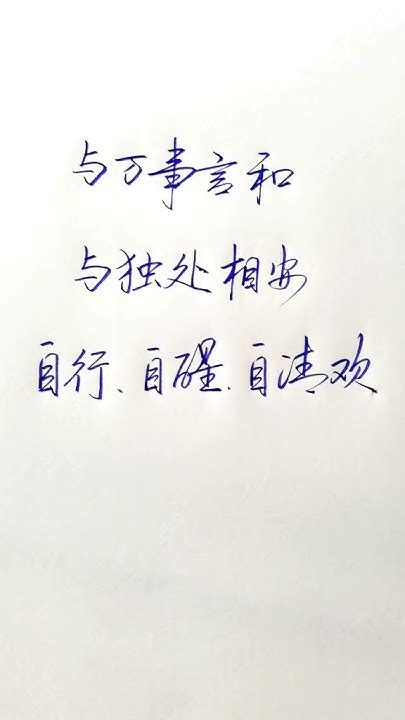 与万事言和
与独处相安
自行、自醒、自清欢